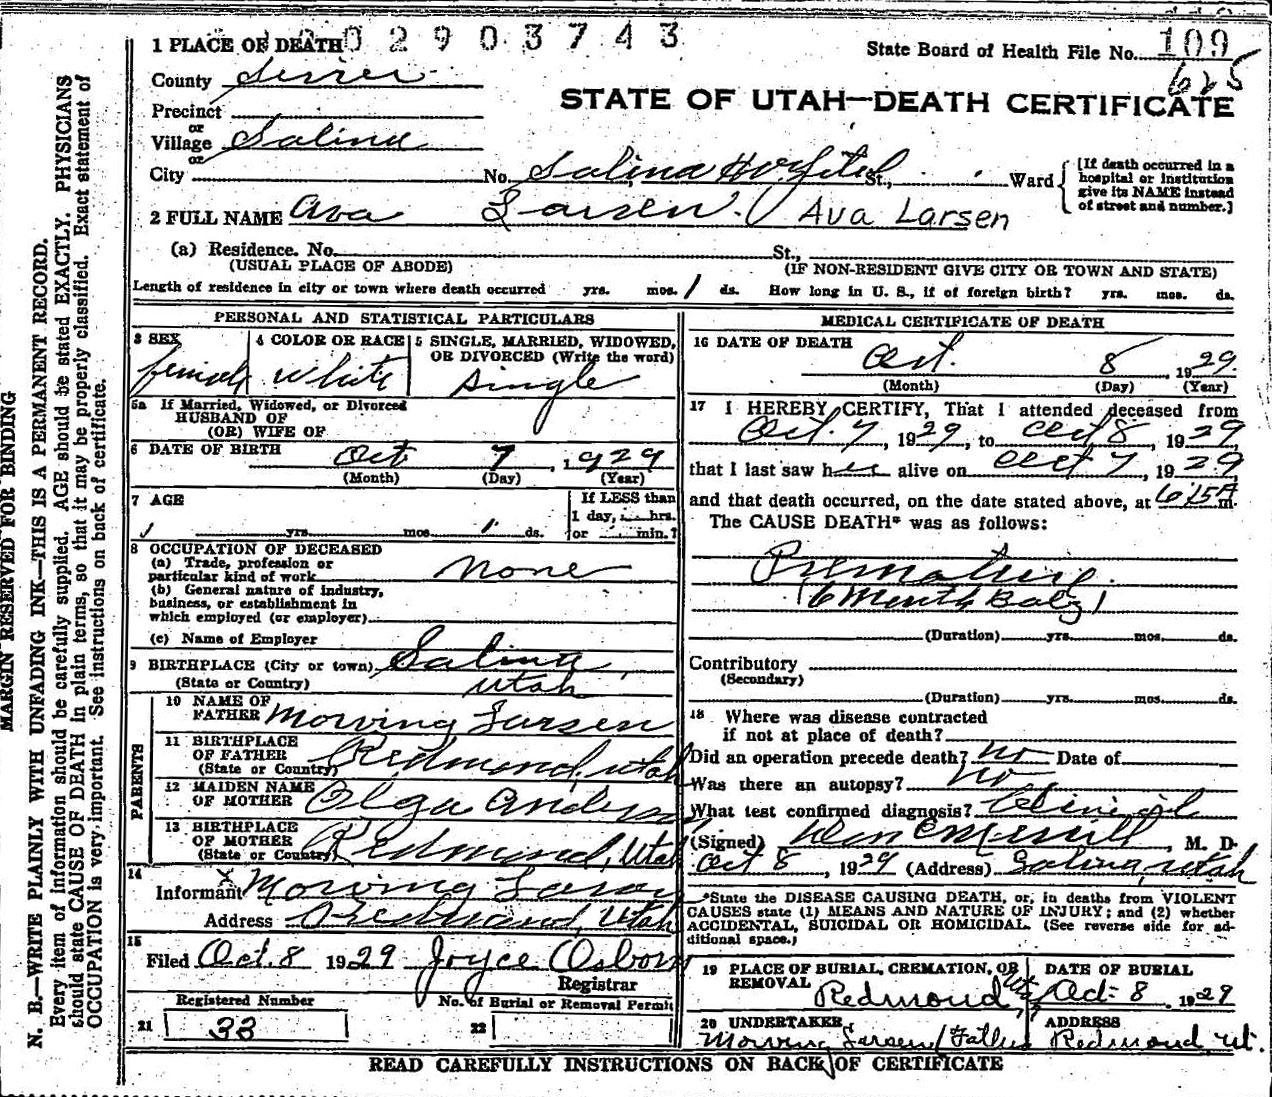 1 PLACE OF DEATH 02903743
State Board of Health File No. 109
625
County Sevier
STATE OF UTAH—DEATH CERTIFICATE
Precinct
or
Village Salina
or
City No. Salina Hospital St., Ward
[If death occurred in a
hospital or institution
give its NAME instead
of street and number.]
2 FULL NAME Ava Larsen. Ava Larsen
(a) Residence. No. St.,
(USUAL PLACE OF ABODE) (IF NON-RESIDENT GIVE CITY OR TOWN AND STATE)
Length of residence in city or town where death occurred yrs. mos. 1 ds. How long in U. S., if of foreign birth? yrs. mos. ds.
PERSONAL AND STATISTICAL PARTICULARS
3 SEX 4 COLOR OR RACE 5 SINGLE, MARRIED, WIDOWED,
OR DIVORCED (Write the word)
female White single
5a If Married, Widowed, or Divorced
HUSBAND OF
(OR) WIFE OF
6 DATE OF BIRTH Oct 7, 1929
(Month) (Day) (Year)
7 AGE If LESS than
1 day, hrs.
yrs. mos. 1 ds. or min.?
8 OCCUPATION OF DECEASED
(a) Trade, profession or
particular kind of work none
(b) General nature of industry,
business, or establishment in
which employed (or employer)
(c) Name of Employer
9 BIRTHPLACE (City or town) Salina
(State or Country) Utah
PARENTS
10 NAME OF
FATHER Morving Larsen
11 BIRTHPLACE
OF FATHER
(State or Country) Redmond, Utah
12 MAIDEN NAME
OF MOTHER Olga Anderson
13 BIRTHPLACE
OF MOTHER
(State or Country) Redmond, Utah
14 x
Informant Morving Larsen
Address Redmond, Utah
15
Filed Oct. 8 1929 Joyce Osborn
Registrar
Registered Number No. of Burial or Removal Permit
21 33 22
MEDICAL CERTIFICATE OF DEATH
16 DATE OF DEATH Oct. 8, 1929.
(Month) (Day) (Year)
17 I HEREBY CERTIFY, That I attended deceased from
Oct. 7, 1929, to Oct 8, 1929,
that I last saw her alive on Oct 7, 1929
and that death occurred, on the date stated above, at 615A m.
The CAUSE DEATH* was as follows:
Premature.
(6 Month Baby)
(Duration) yrs. mos. ds.
Contributory
(Secondary)
(Duration) yrs. mos. ds.
18 Where was disease contracted
if not at place of death?
Did an operation precede death? no Date of
Was there an autopsy? no
What test confirmed diagnosis? Clinical
(Signed) Merrill, M. D.
Oct 8, 1929 (Address) Salina, Utah
*State the DISEASE CAUSING DEATH, or, in deaths from VIOLENT
CAUSES state (1) MEANS AND NATURE OF INJURY; and (2) whether
ACCIDENTAL, SUICIDAL OR HOMICIDAL. (See reverse side for ad-
ditional space.)
19 PLACE OF BURIAL, CREMATION, OR
REMOVAL Redmond Utah
DATE OF BURIAL
Oct- 8, 1929
20 UNDERTAKER ADDRESS
Morving Larsen/Father Redmond, Ut.
READ CAREFULLY INSTRUCTIONS ON BACK OF CERTIFICATE
MARGIN RESERVED FOR BINDING
N. B.—WRITE PLAINLY WITH UNFADING INK—THIS IS A PERMANENT RECORD.
Every item of information should be carefully supplied. AGE should be stated EXACTLY. PHYSICIANS
should state CAUSE OF DEATH in plain terms, so that it may be properly classified. Exact statement of
OCCUPATION is very important. See instructions on back of certificate.